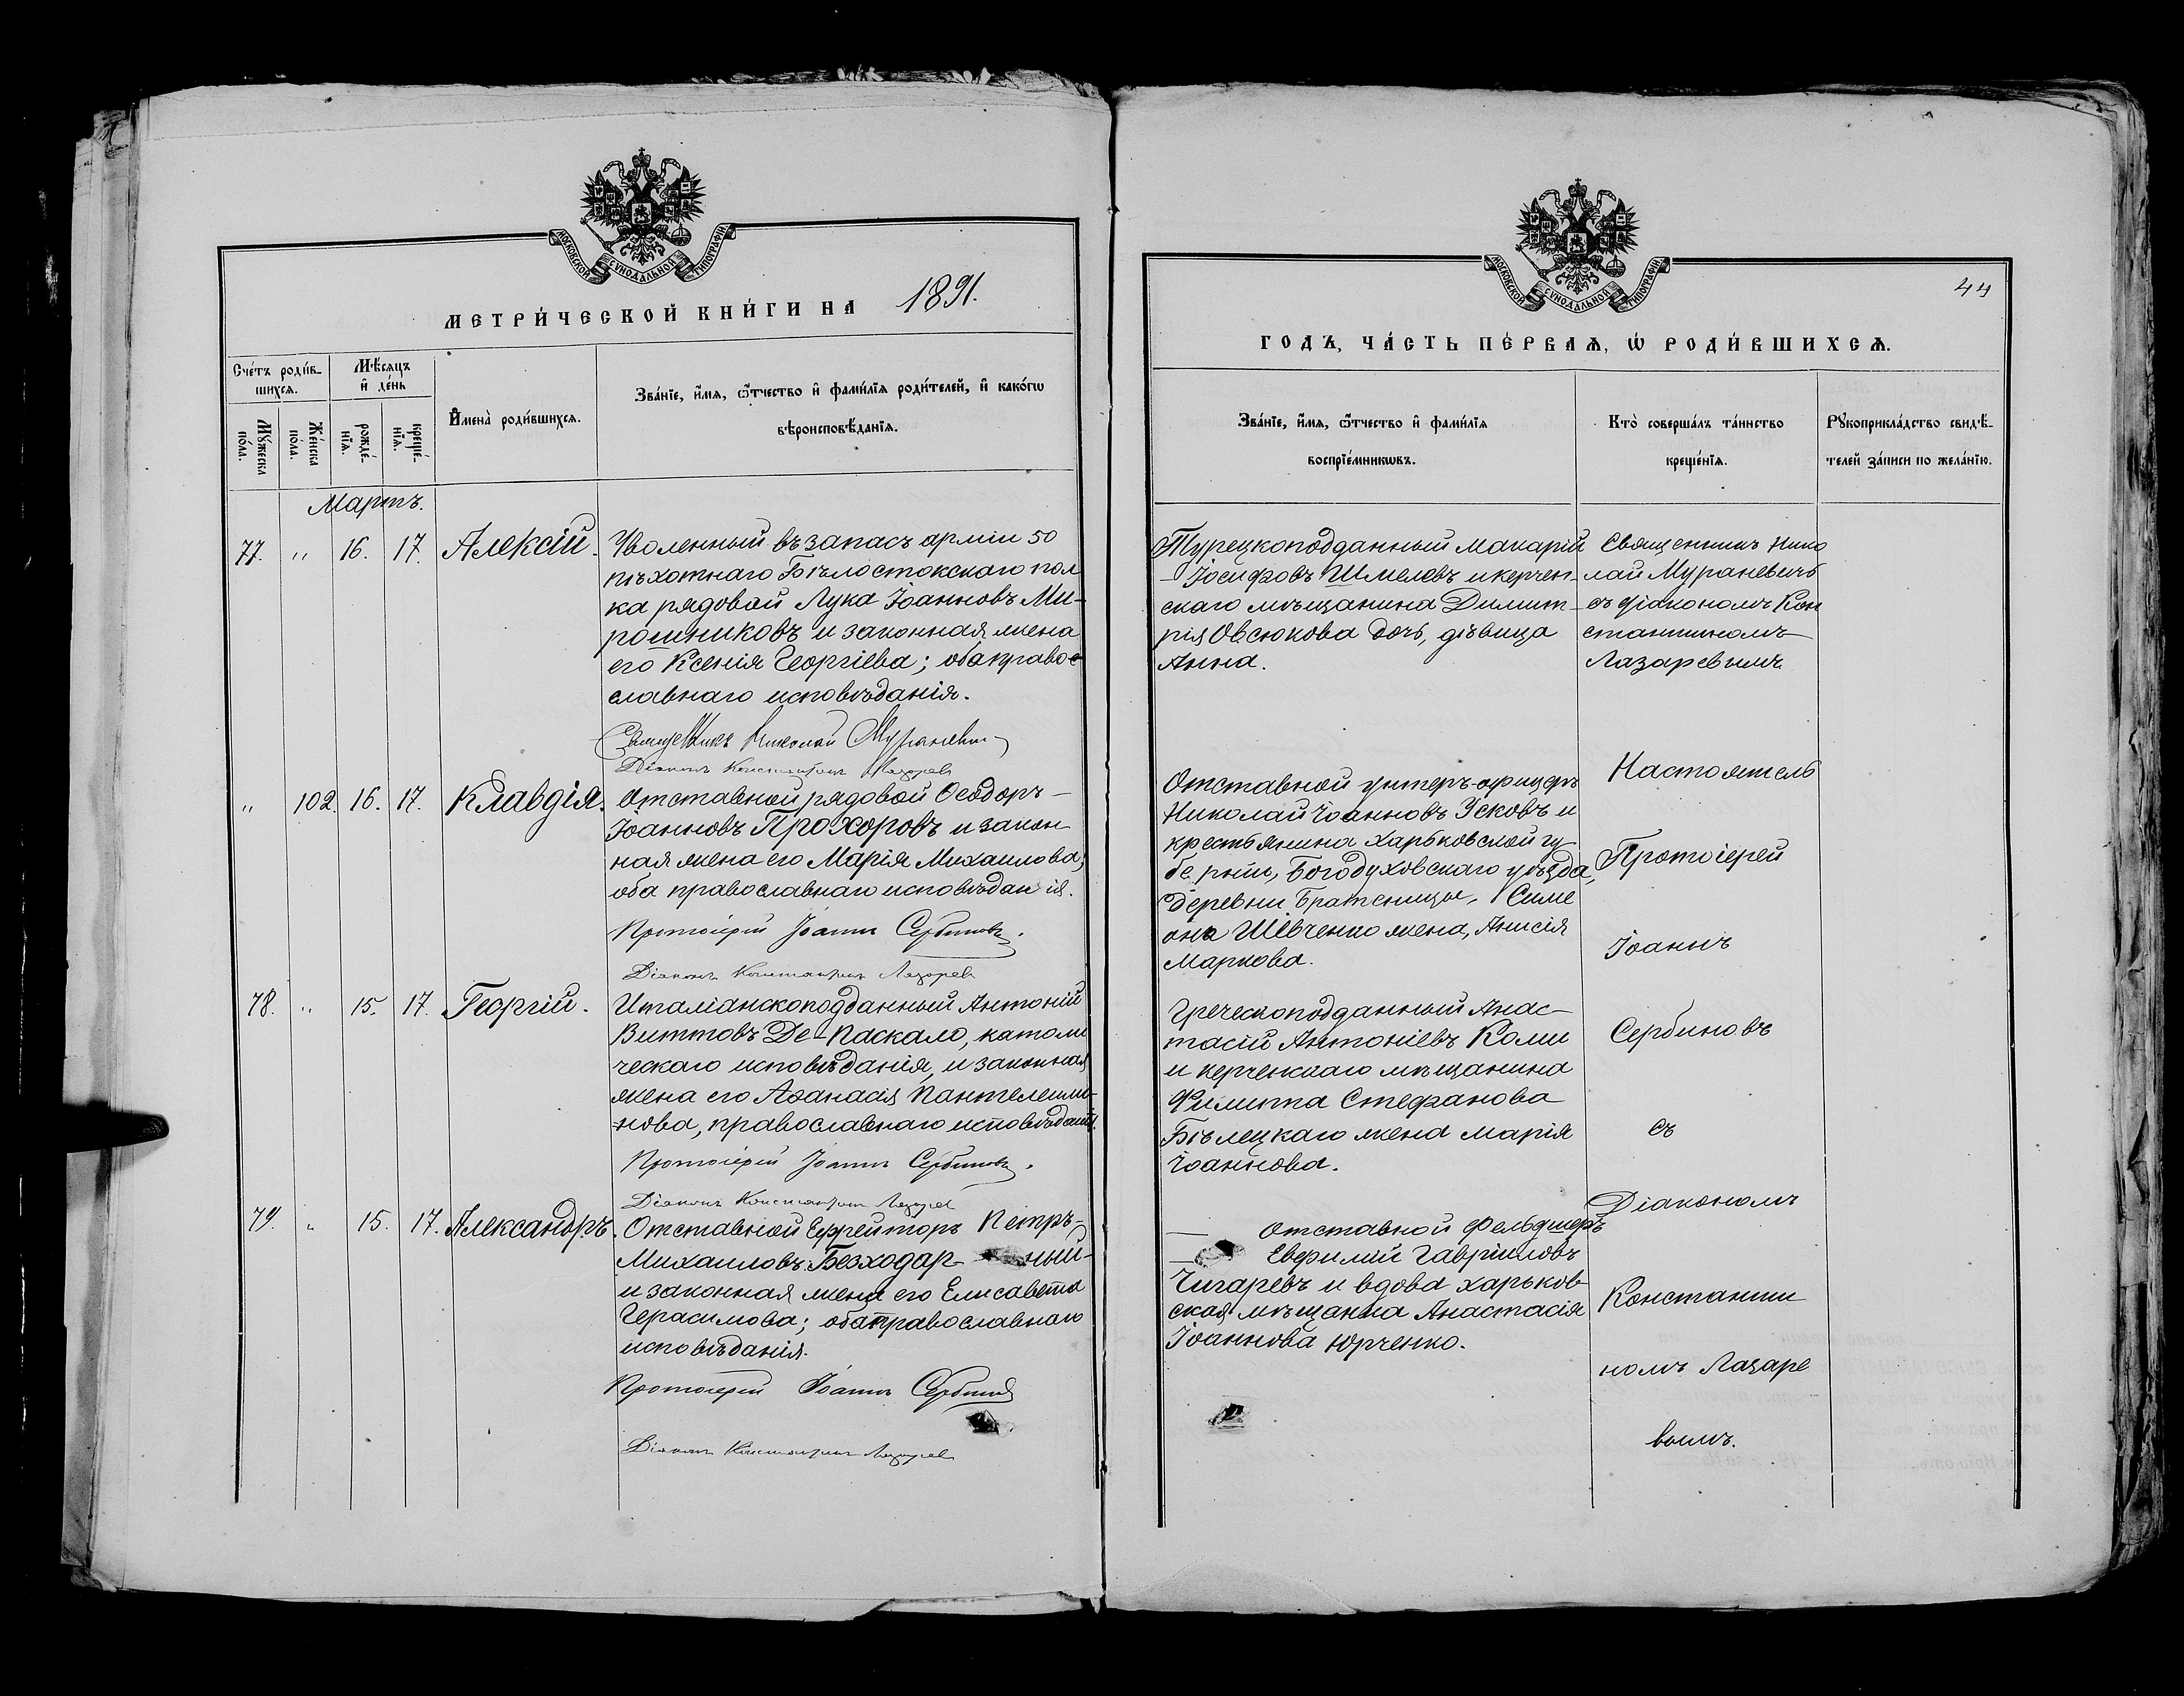 МОСКОВСКОЙ СѴНОДАЛЬНОЙ ТИПОГРАФІИ
МЕТРИ́ЧЕСКОЙ КНИ́ГИ НА 1891.
Сче́тъ роди́в-
шихся.
Мѣ́сяцъ
и҆ де́нь
Мꙋ́жеска
по́ла.
Же́нска
по́ла.
рожде́-
нїѧ.
креще́-
нїѧ.
И҆мена̀ роди́вшихсѧ.
Зва́нїе, и҆́мѧ, ѻ҆́тчество и҆ фами́лїѧ роди́телей, и҆ како́гѡ
вѣроисповѣ́данїѧ.
Мартъ.
77. " 16. 17. Алексій.
Уволенный въ запасъ арміи 50
пѣхотнаго Бѣлостокскаго пол
ка рядовой Лука Іоанновъ Ми-
рошниковъ и законная жена
его Ксенія Георгіева; оба право-
славнаго исповѣданія.
Священникъ Николай Мураневич
Діаконъ Константинъ Лазарев
" 102. 16. 17. Клавдія.
Отставной рядовой Ѳеодоръ
Іоанновъ Прохоровъ и закон
ная жена его Марія Михаилова;
оба православнаго исповѣданія.
Протоіерей Іоаннъ Сербиновъ.
Діаконъ Константинъ Лазарев
78. " 15. 17. Георгій.
Италіанскоподданный Антоній
Виттовъ Де-Паскало, католи
ческаго исповѣданія, и законная
жена его Аѳанасія Пантелеимо-
нова, православнаго исповѣданія.
Протоіерей Іоаннъ Сербиновъ.
Діаконъ Константинъ Лазарев
79. " 15. 17. Александръ.
Отставной Ефрейторъ Петръ-
Михаиловъ Безходар- ный-
и законная жена его Елисавета
Герасимова; оба православнаго
исповѣданія.
Протоіерей Іоаннъ Сербинов
Діаконъ Константинъ Лазарев
МОСКОВСКОЙ СѴНОДАЛЬНОЙ ТИПОГРАФІИ
44
ГОДЪ, ЧА́СТЬ ПЕ́РВАѦ, Ѡ҆ РОДИ́ВШИХСѦ.
Зва́нїе, и҆́мѧ, ѻ҆́тчество и҆ фами́лїѧ
воспрїе́мникѡвъ.
Кто̀ соверша́лъ та́инство
креще́нїѧ.
Рꙋкоприкла́дство свидѣ́-
телей за́писи по жела́нїю.
Турецкоподданный Макарій
Іосифовъ Шмелевъ и керчен-
скаго мѣщанина Димит-
рія Овсюкова дочь, дѣвица
Анна.
Священникъ Нико
лай Мураневичъ
съ діакономъ Кон
стантиномъ
Лазаревымъ
Отставной унтеръ-офицеръ
Николай Іоанновъ Усковъ и
крестьянина Харьковской гу
берніи, Богодуховскаго уѣзда,
деревни Братеницы, Симе
она Шевченко жена, Анисія
Маркова.
Греческоподданный Анас-
тасій Антоніевъ Коми
и керченскаго мѣщанина
Филиппа Стефанова
Бѣлецкаго жена Марія
Іоаннова.
Отставной Фельдшеръ
Евфимій Гавріиловъ
Чигаревъ и вдова харьков-
ская мѣщанка Анастасія
Іоаннова Юрченко.
Настоятель
Протоіерей
Іоаннъ
Сербиновъ
съ
Діакономъ
Константи
номъ Лазаре
вымъ.